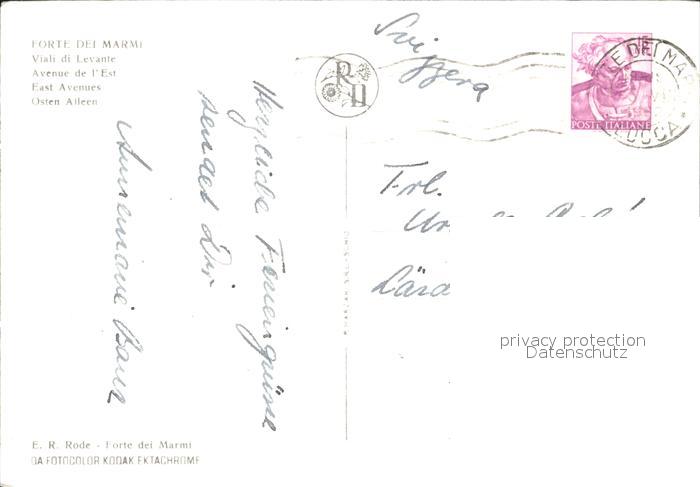 FORTE DEI MARMI
Viali di Levante
Avenue de l'Est
East Avenues
Osten Alleen
Herzliche Feriengrüsse
sendet Dir
Annemarie
E. R. Rode - Forte dei Marmi
DA FOTOCOLOR KODAK EKTACHROME
Svizzera
POSTE ITALIANE
DEI MAR
LUCCA
Frl.
privacy protection
Datenschutz